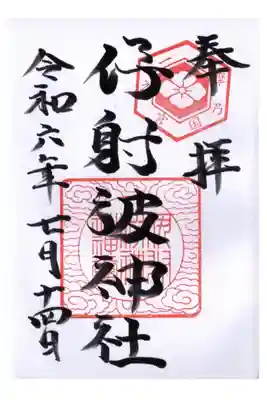 奉拝
摩乃国
伊射波神社
令和六年七月十四日